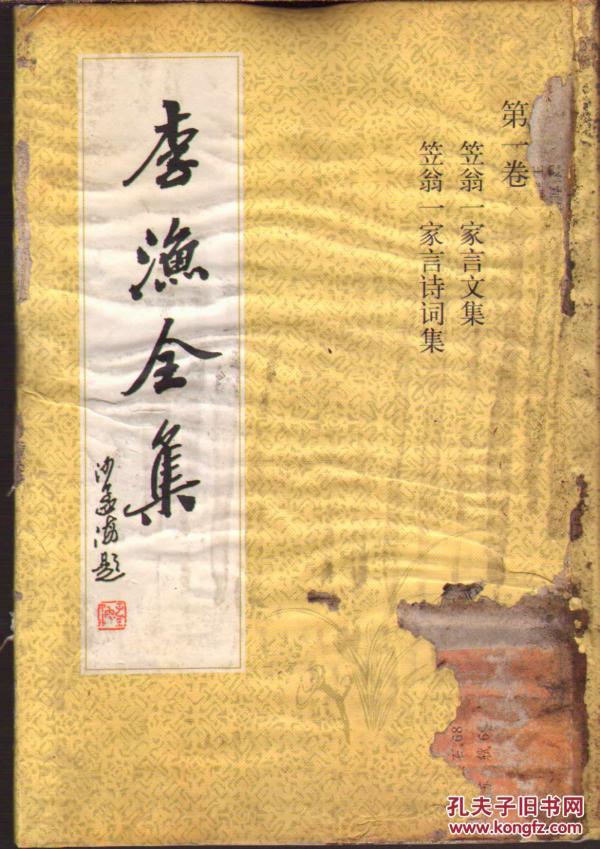 第一卷
笠翁一家言文集
笠翁一家言诗词集
李漁全集
沙孟海题
孔夫子旧书网
www.kongfz.com